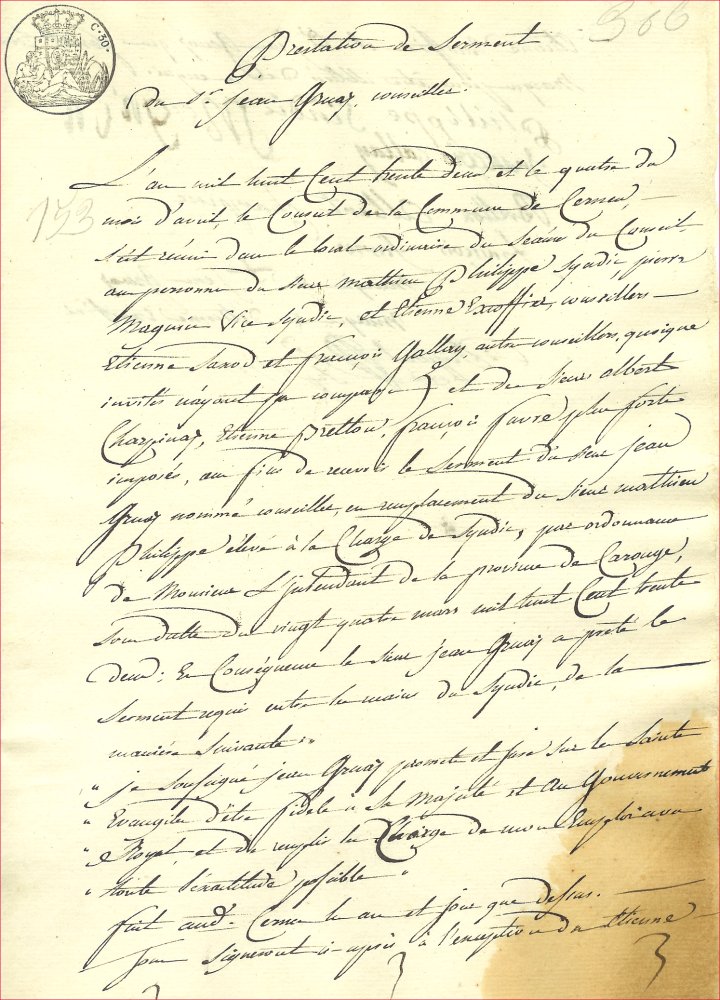 C. 50.
366
Prestation de Serment
du Sr. Jean Gruaz, conseiller.
153
L'an mil huit Cent trente deux et le quatre du
mois d'avril, le Conseil de la Commune de Cernex,
s'est réuni dans le local ordinaire des Séances du Conseil
au personne du Sieur mathieu Philippe Syndic pierre
Magnin Vice Syndic, et Etienne Excoffier, conseillers
Etienne Saxod et françois Gallay, autre conseillers, quoique
invités n'ayant pa comparu) et des Sieurs albert
Charpinaz, Etienne Prettou, françois favre plus forts
imposés, au fins de recevoir le Serment du Sieur jean
Gruaz nommé conseiller, en remplacement du Sieur mathieu
Philippe élevé à la Charge de Syndic, par ordonnance
de Monsieur L'jntendant de la province de Carouge,
sous datte du vingt quatre mars mil huit Cent trente
deux; En Conséquence le Sieur jean Gruaz a prêté le
Serment requis entre les mains du Syndic, de la
manière Suivante:"
" je soussigné jean Gruaz promets et jure sur les Saints
" Evangiles d'être fidele à Sa Majesté et Au Gouvernement
" Royal, et de remplir la Charge de mon Emploi avec
" toute l'exatitude possible "
fait aud. Cernex les an et jour que dessus.
Signeront ci après à l'exception du Etienne